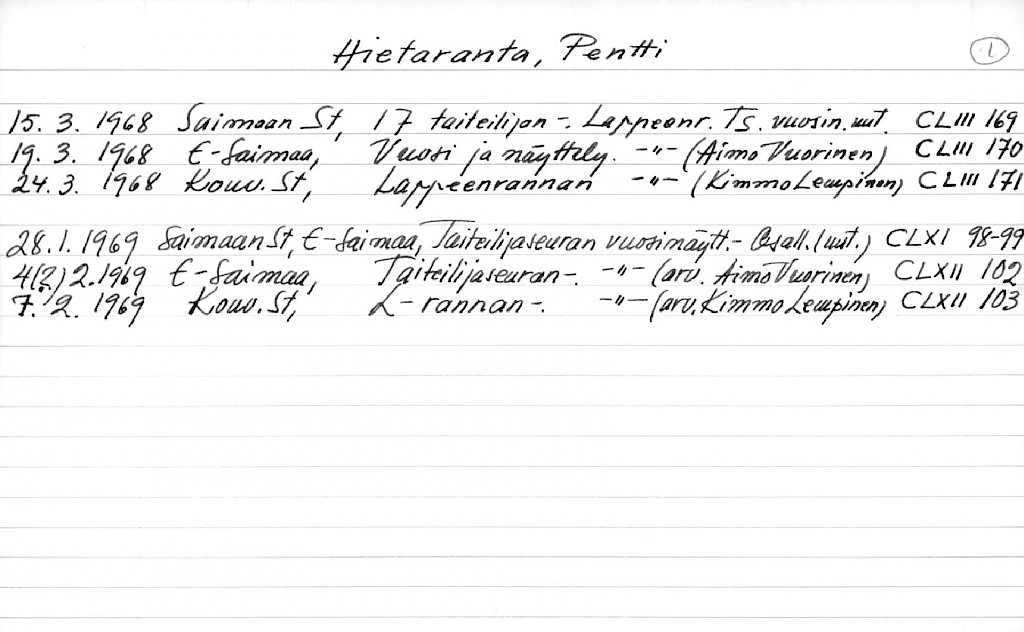 Hietaranta, Pentti 1
15. 3. 1968 Saimaan St, 17 taiteilijan -. Lappeenr. Ts. vuosin. uut. CLIII 169
19. 3. 1968 E-Saimaa, Vuosi ja näyttely. -"- (Aimo Vuorinen) CLIII 170
24. 3. 1968 Kouv. St, Lappeenrannan -"- (Kimmo Lempinen) CLIII 171
28. 1. 1969 Saimaan St, E-Saimaa, Taiteilijaseuran vuosinäytt.- Osall. (uut.) CLXI 98-99
4(?) 2. 1969 E-Saimaa, Taiteilijaseuran -. -"- (arv. Aimo Vuorinen) CLXII 102
7. 2. 1969 Kouv. St, L-rannan -. -"- (arv. Kimmo Lempinen) CLXII 103